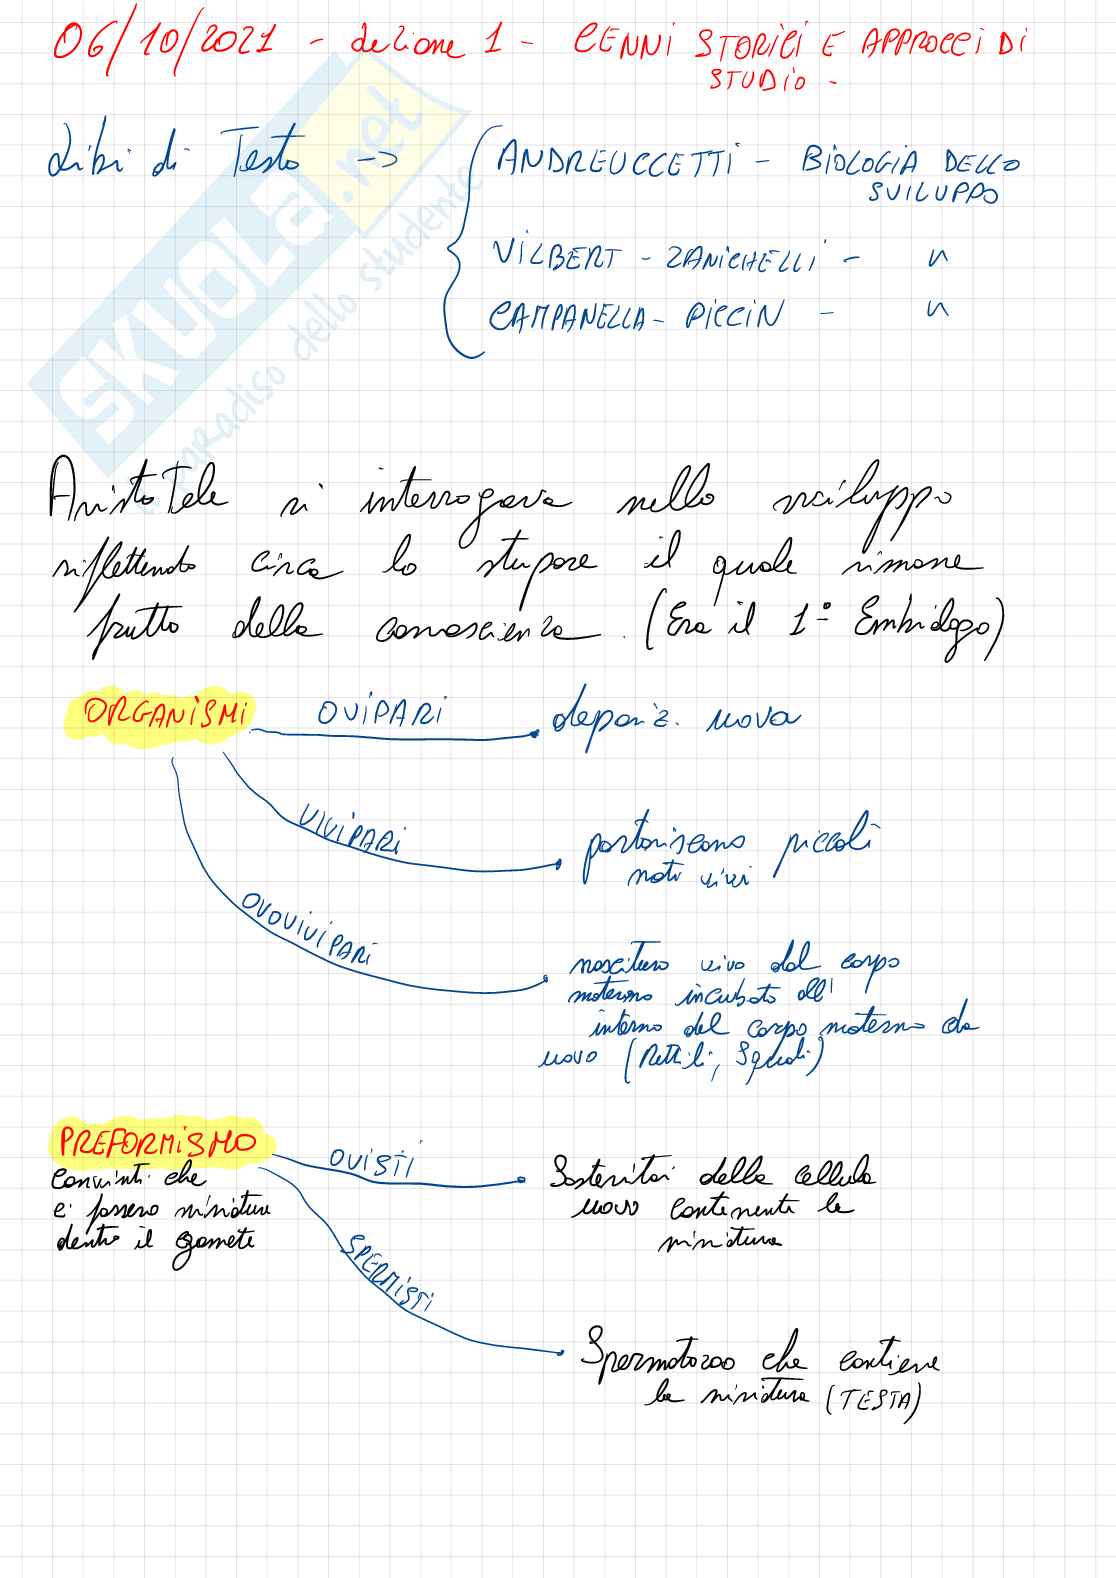 06/10/2021 - Lezione 1 - CENNI STORICI E APPROCCI DI
STUDIO -
Libri di Testo -> ANDREUCCETTI - BIOLOGIA DELLO
SVILUPPO
VILBERT - ZANICHELLI - "
CAMPANELLA - PICCIN - "
SKUOLA.net
paradiso dello studente
Aristotele si interrogava nello sviluppo
riflettendo circa lo stupore il quale rimane
frutto della conoscienza. (Era il 1° Embriologo)
ORGANISMI OVIPARI deporiz. uova
VIVIPARI partoriscono piccoli
nati vivi
OVOVIVIPARI nascituro vivo dal corpo
materno incubato all'
interno del corpo materno da
uovo (Rettili, Squali)
PREFORMISMO OVISTI Sostenitori della cellula
uovo contenente la
miniatura
Convinti che
ci fossero miniature
dentro il gamete
SPERMISTI Spermatozoo che contiene
la miniatura (TESTA)